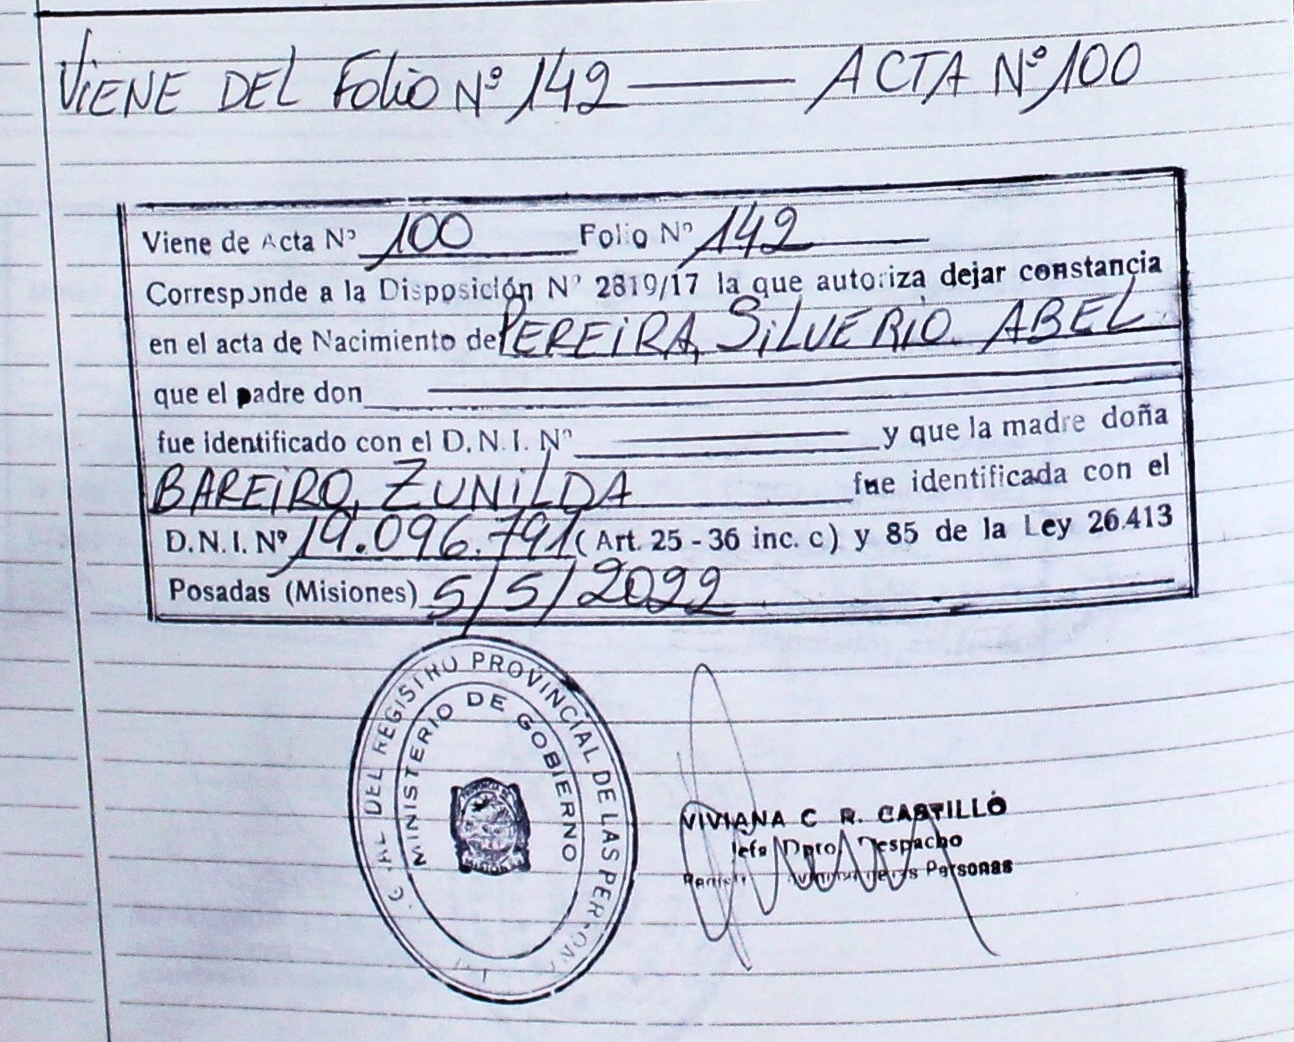 VIENE DEL FOLIO Nº 142 ——— ACTA Nº 100
Viene de Acta Nº 100 Folio Nº 142
Corresponde a la Disposición Nº 2819/17 la que autoriza dejar constancia
en el acta de Nacimiento de PEREIRA, SILVERIO ABEL
que el padre don
fue identificado con el D.N.I. Nº y que la madre doña
BAREIRO, ZUNILDA fue identificada con el
D.N.I. Nº 19.096.791 (Art. 25 - 36 inc. c) y 85 de la Ley 26.413
Posadas (Misiones) 5/5/2022
DEL REGISTRO PROVINCIAL DE LAS PERSONAS
MINISTERIO DE GOBIERNO
VIVIANA C R. CASTILLO
Jefa Dpto Despacho
Personas